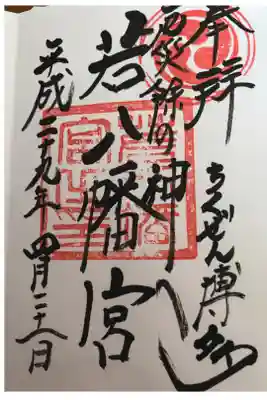 奉拝
ちくぜん博多
厄災除の神
若八幡宮
平成二十九年 四月二十一日